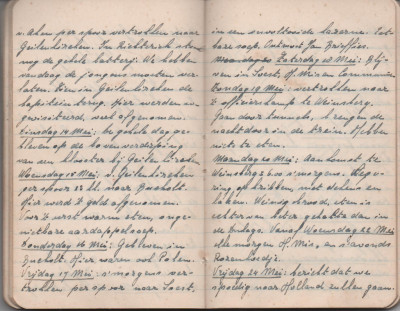 v. Aken per spoor vertrokken naar
Geilenkirchen. In Richterich stond
nog de gehele batterij. We hebben
vandaag de jongens moeten ver-
laten. Ben in Geilenkirchen de
kapitein terug. Hier werden we
gevisiteerd, veel afgenomen.
Dinsdag 14 Mei: de gehele dag ge-
bleven op de bovenverdieping
van een klooster bij Geilenkirchen
Woensdag 15 Mei: v. Geilenkirchen
per spoor 12 h. naar Bocholt.
Hier werd 't geld afgenomen.
Voor 't eerst warm eten, onge-
nietbare aardappelsoep.
Donderdag 16 Mei: Gebleven in
Bocholt. Hier waren ook Polen.
Vrijdag 17 Mei: 's morgens ver-
trokken per spoor naar Soest,
in een onvoltooide kazerne. Eet-
bare soep. Ontmoet Jan
Zaterdag 18 Mei: Blij-
ven in Soest. H. Mis en Communie
Zondag 19 Mei: vertrokken naar
't officierskamp te Weinsberg.
Gaan door tunnels, brengen de
nacht door in de trein. Hebben
niets te eten.
Maandag 20 Mei: Aankomst te
Weinsberg 's morgens. Lege-
ring op kribben, met dekens en
laken. Weinig brood, eten is
echter van beter gehalte dan in
de vorige. Vanaf Woensdag 22 Mei
elke morgen H. Mis, en 's avonds
Rozenhoedje.
Vrijdag 24 Mei: bericht dat we
spoedig naar Holland zullen gaan.